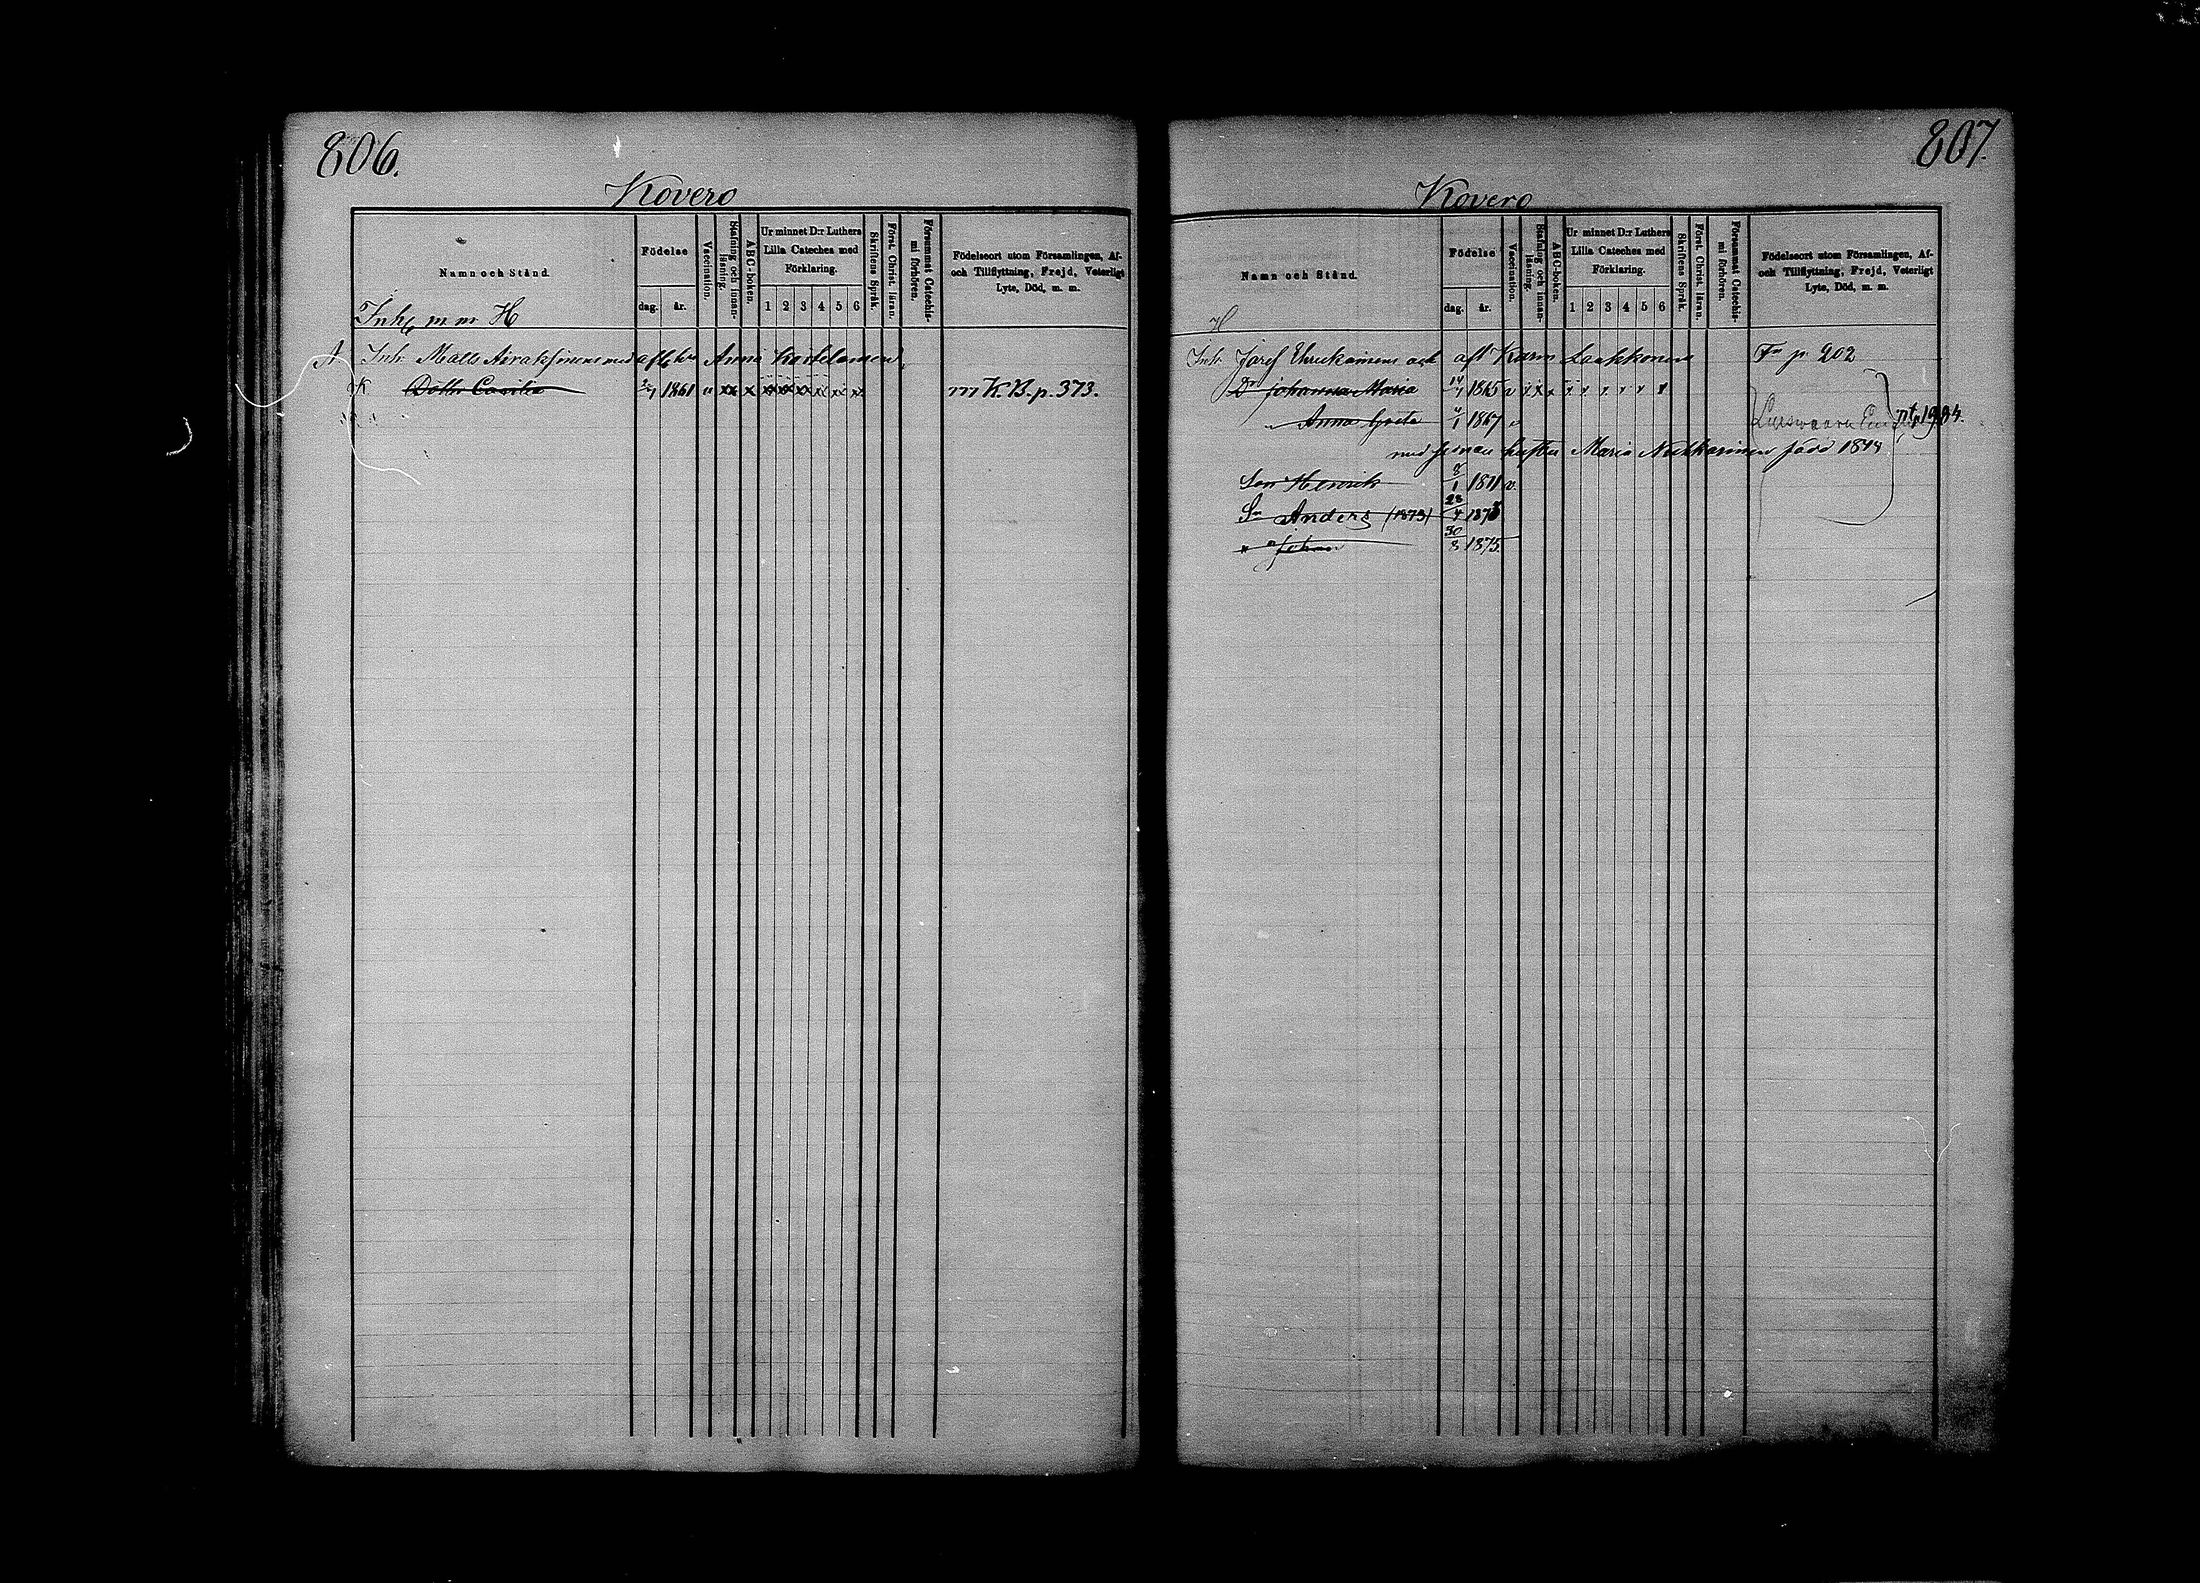 806.
Kovero
Namn och Stånd.
Födelse
dag. år.
Vaccination.
Stafning och innan-läsning.
ABC-boken.
Ur minnet D:r Luthers Lilla Cateches med Förklaring.
1 2 3 4 5 6
Skriftens Språk.
Först. Christ. läran.
Försummat Catechis-mi förhören.
Födelseort utom Församlingen, Af- och Tillflyttning, Frejd, Veterligt Lyte, Död, m. m.
Inh m m H
Inh. Matts Airaksinens med Anna
K Dotter 1861 v xx x xx xx xx xx x xx m K.B. p. 373.
807.
Kovero
Namn och Stånd.
Födelse
dag. år.
Vaccination.
Stafning och innan-läsning.
ABC-boken.
Ur minnet D:r Luthers Lilla Cateches med Förklaring.
1 2 3 4 5 6
Skriftens Språk.
Först. Christ. läran.
Försummat Catechis-mi förhören.
Födelseort utom Församlingen, Af- och Tillflyttning, Frejd, Veterligt Lyte, Död, m. m.
H
Inh. Josef och afl Karin Laakkonens Fr p. 202
Dr Johanna Maria 1865 v
" Anna Greta 1867 v
med sednare hustru Maria född
Son Henrik 8/1 1871 v.
Sn Anders (1873) 23/4 1873
" Johan 30/8 1875